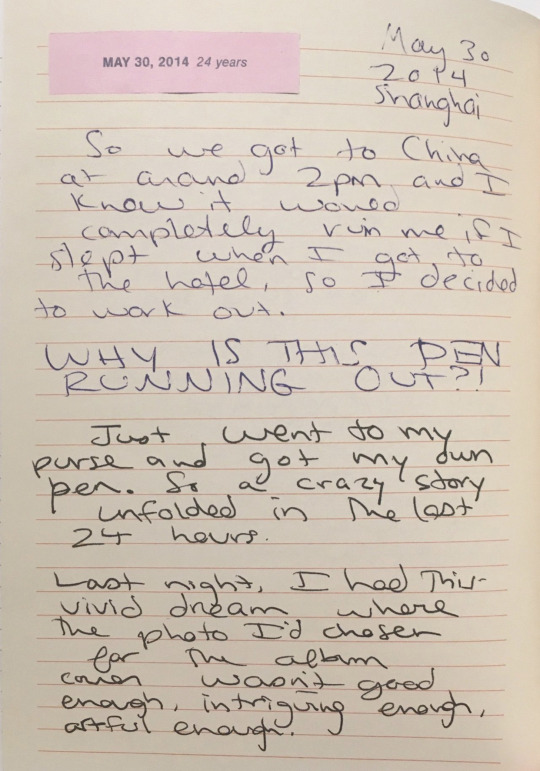 MAY 30, 2014 24 years
May 30
2014
Shanghai
So we got to China
at around 2pm, and I
know it would
completely ruin me if I
slept when I got to
the hotel, so I decided
to work out.
WHY IS THIS PEN
RUNNING OUT?!
Just went to my
purse and got my own
pen. So a crazy story
unfolded in the last
24 hours.
Last night, I had this
vivid dream where
the photo I'd chosen
for the album
cover wasn't good
enough, intriguing enough,
artful enough.